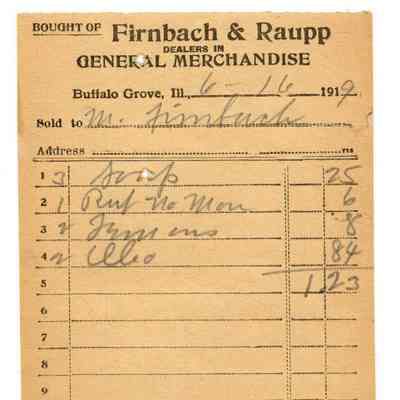 BOUGHT OF Firnbach & Raupp
DEALERS IN
GENERAL MERCHANDISE
Buffalo Grove, Ill., 6-16 1919
Sold to M. Firnbach
Address
1 3 Soap 25
2 1 Ruf No Mon 6
3 2 Lemons 8
4 2 Oleo 84
5 1.23
6
7
8
9